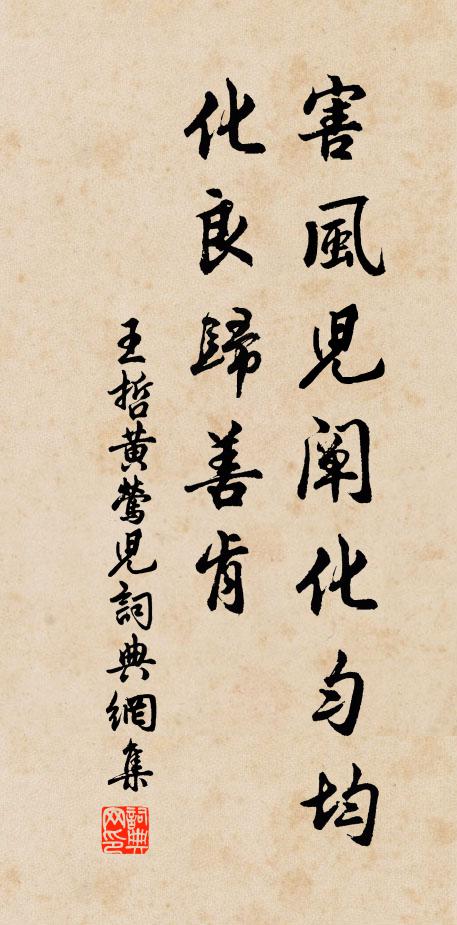 害風兒闡化匀均
化良歸善肯
王哲黄鶯兒詞典網集
詞典网印